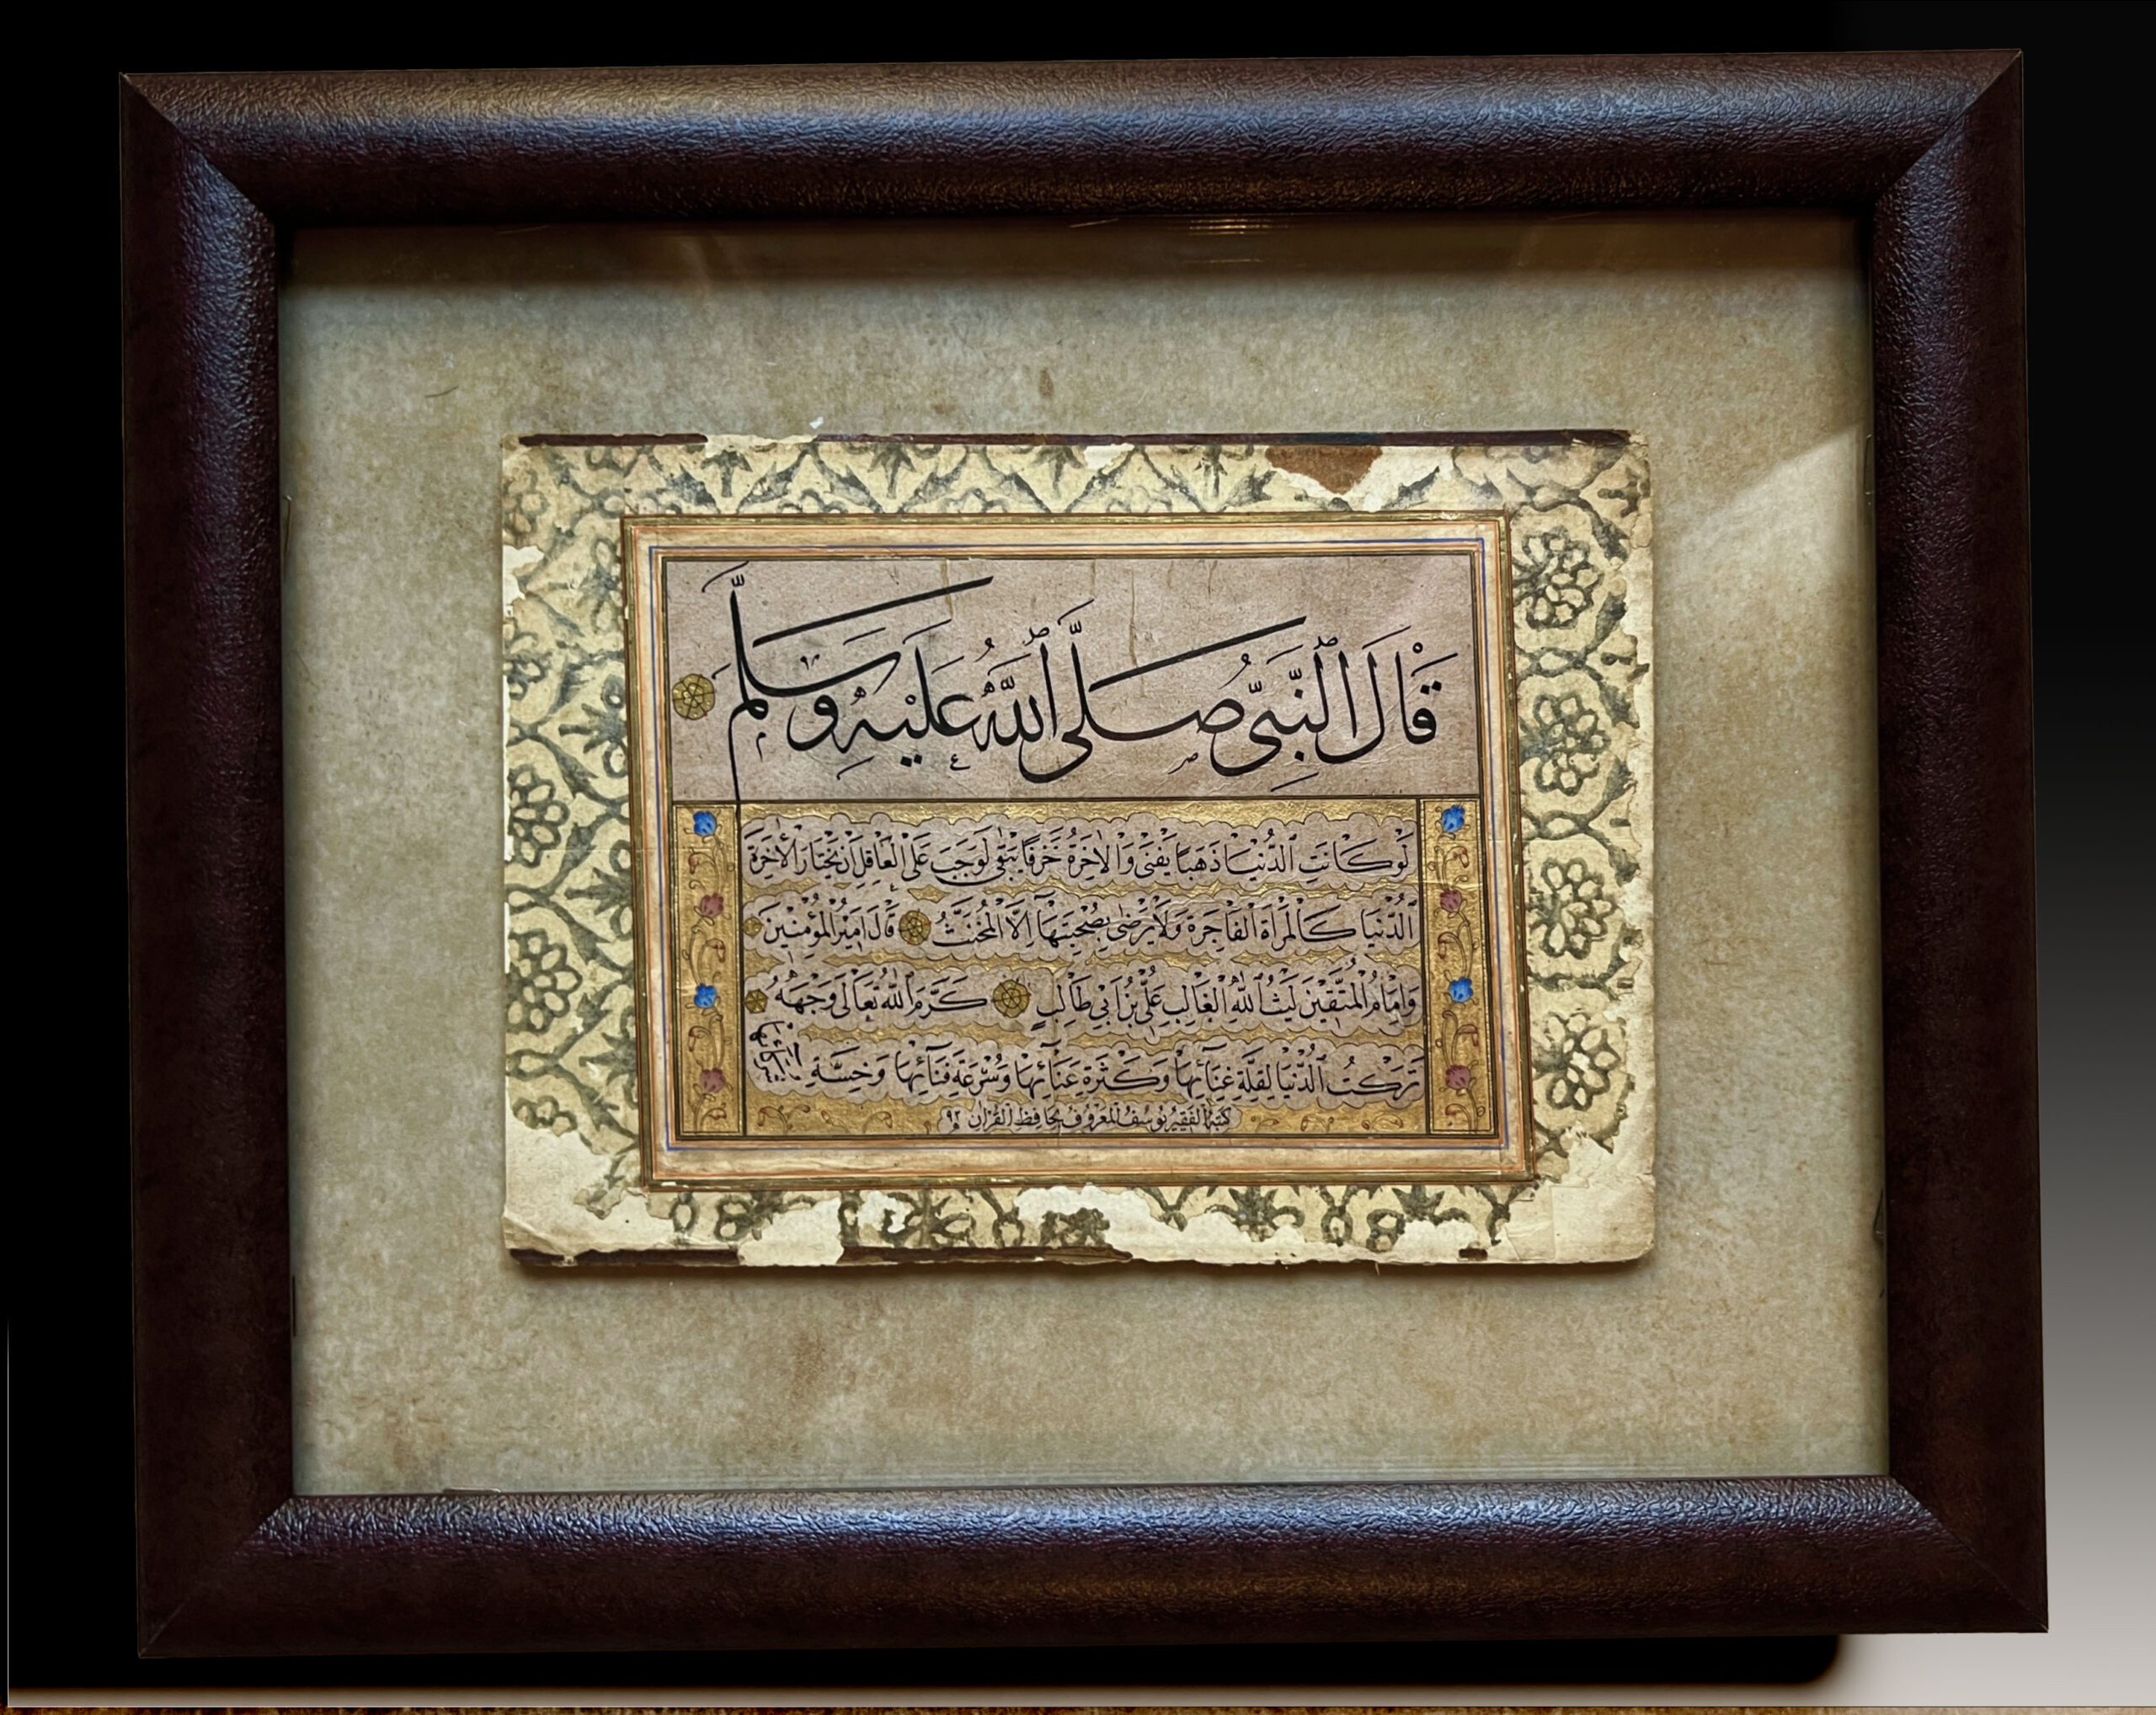 قَالَ النَّبِيُّ صَلَّى اللهُ عَلَيْهِ وَسَلَّمَ
لَوْ كَانَتِ الدُّنْيَا ذَهَبًا يَفْنَى وَالْاٰخِرَةُ خَزَفًا يَبْقٰى لَوَجَبَ عَلَى الْعَاقِلِ اَنْ يَخْتَارَ الْاٰخِرَةَ
اَلدُّنْيَا كَالْمَرْأَةِ الْفَاجِرَةِ وَلَا يَرْضٰى بِصُحْبَتِهَا اِلَّا الْمُخَنَّثُ قَالَ اَمِيرُ الْمُؤْمِنِينَ
وَاِمَامُ الْمُتَّقِينَ لَيْثُ اللهِ الْغَالِبِ عَلِيُّ بْنُ اَبِي طَالِبٍ كَرَّمَ اللهُ تَعَالٰى وَجْهَهُ
تَرَكْتُ الدُّنْيَا لِقِلَّةِ غَنَائِهَا وَكَثْرَةِ عَنَائِهَا وَسُرْعَةِ فَنَائِهَا وَخِسَّةِ شُرَكَائِهَا
كَتَبَهُ الْفَقِيرُ يُوسُفُ الْمَعْرُوفُ بِحَافِظِ الْقُرْاٰنِ